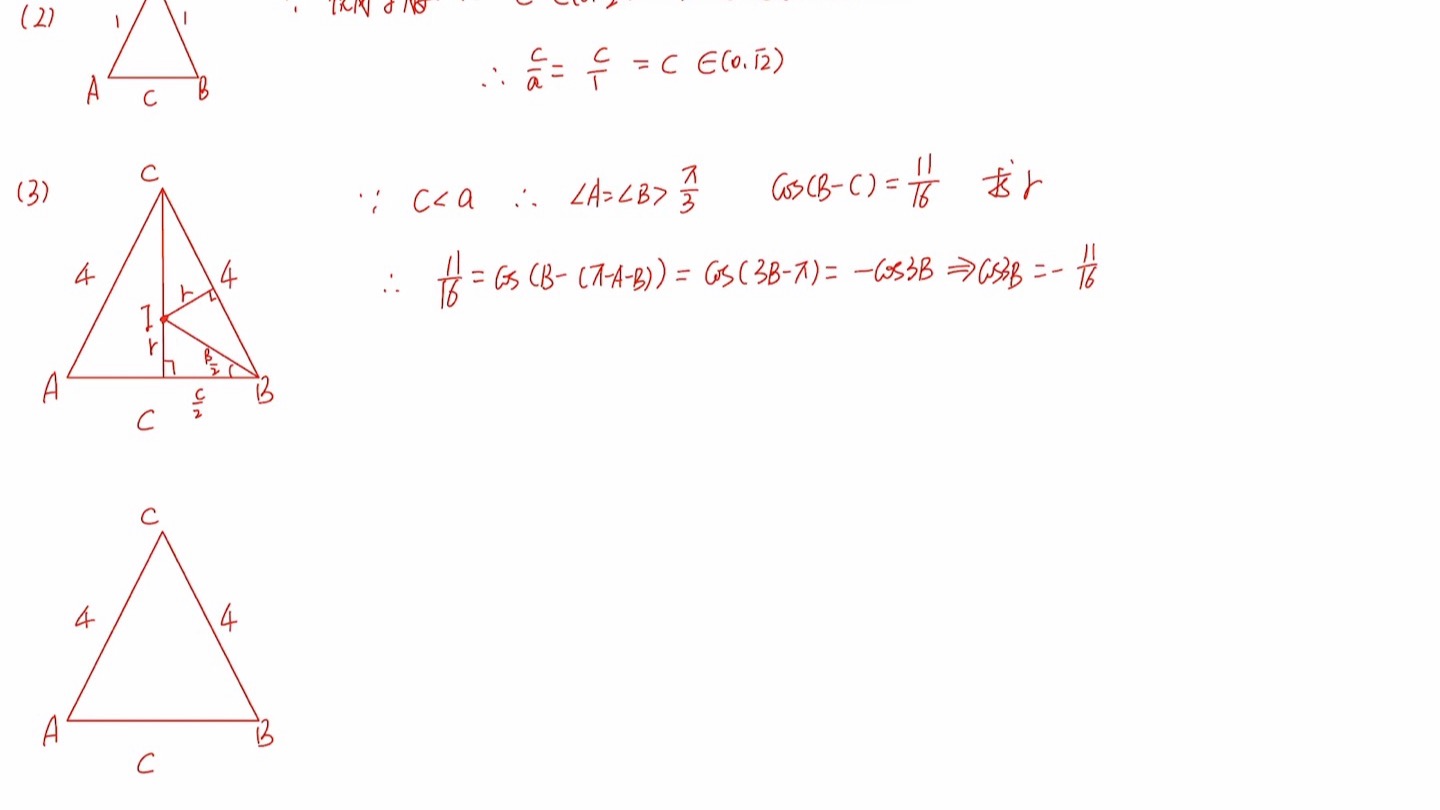 (2)
1 1
A C B
∴ c/a = c/1 = c ∈(0,√2)
(3)
C
4 4
r
I
r
B/2
A B
c/2
C
∵ c<a ∴ ∠A=∠B>π/3 cos(B-C)=11/16 求r
∴ 11/16 = cos(B-(π-A-B)) = cos(3B-π) = -cos3B ⇒cos3B = -11/16
C
4 4
A B
C